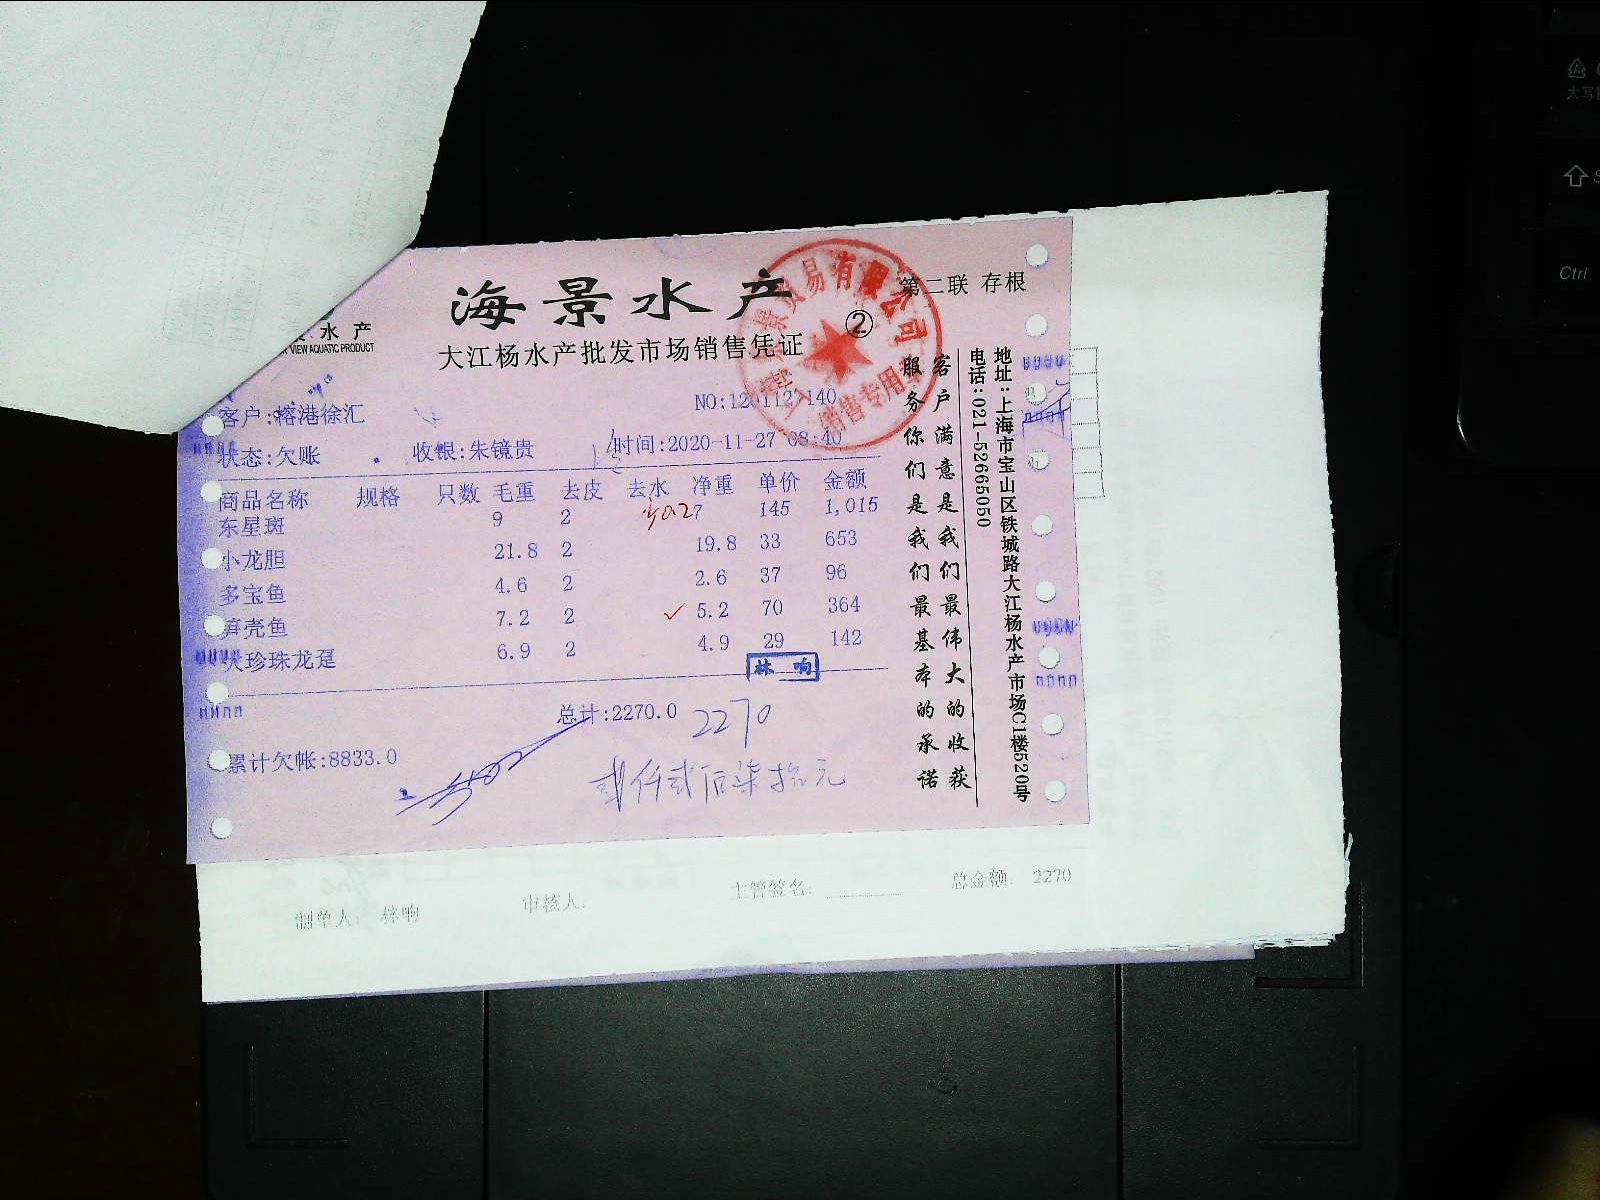 海景水产
第二联 存根
大江杨水产批发市场销售凭证
②
水产
VIEW AQUATIC PRODUCT
贸易有限公司
销售专用章
客户:榕港徐汇
状态:欠账 收银:朱镜贵 时间:2020-11-27 08:40
商品名称 规格 只数 毛重 去皮 去水 净重 单价 金额
东星斑 9 2 7 145 1,015
小龙胆 21.8 2 19.8 33 653
多宝鱼 4.6 2 2.6 37 96
笋壳鱼 7.2 2 ✓ 5.2 70 364
大珍珠龙趸 6.9 2 4.9 29 142
林 响
总计:2270.0 2270
累计欠帐:8833.0
贰仟贰佰柒拾元
客户满意是我们最伟大的收获
服务你们是我们最基本的承诺
地址:上海市宝山区铁城路大江杨水产市场C1楼520号
电话:021-52665050
制单人: 林响 审核人: 主管签名: 总金额: 2270
大写
Ctrl